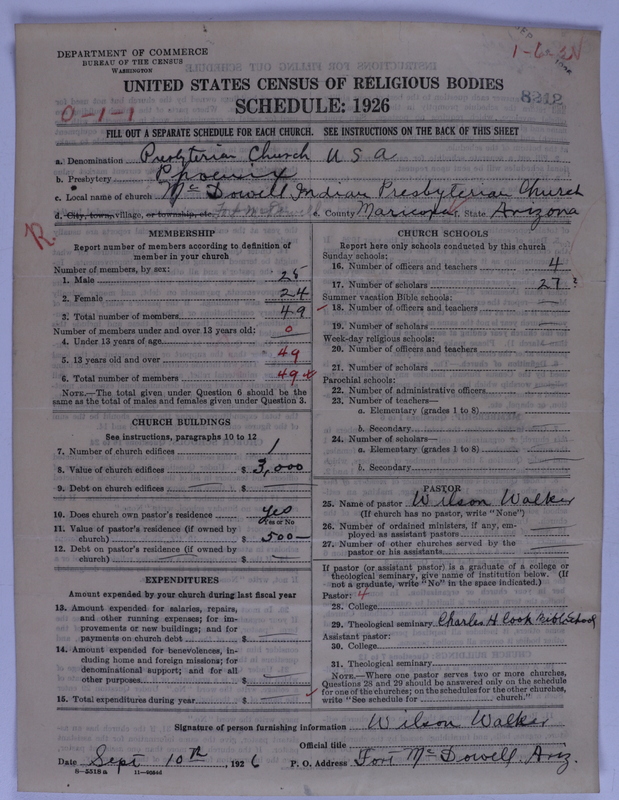 DEPARTMENT OF COMMERCE
BUREAU OF THE CENSUS
WASHINGTON
1-6-28
UNITED STATES CENSUS OF RELIGIOUS BODIES
SCHEDULE: 1926
8212
0-1-1
FILL OUT A SEPARATE SCHEDULE FOR EACH CHURCH. SEE INSTRUCTIONS ON THE BACK OF THIS SHEET
a. Denomination Presbyterian Church U S A
b. Presbytery Phoenix
c. Local name of church Mc Dowell Indian Presbyterian Church
d. City, town, village, or township, etc. e. County Maricopa f. State Arizona
R
MEMBERSHIP
Report number of members according to definition of member in your church
Number of members, by sex:
1. Male 25
2. Female 24
3. Total number of members 49
Number of members under and over 13 years old:
4. Under 13 years of age 0
5. 13 years old and over 49
6. Total number of members 49
NOTE.—The total given under Question 6 should be the same as the total of males and females given under Question 3.
CHURCH BUILDINGS
See instructions, paragraphs 10 to 12
7. Number of church edifices 1
8. Value of church edifices $ 3,000
9. Debt on church edifices $
10. Does church own pastor's residence yes
Yes or No
11. Value of pastor's residence (if owned by church) $ 500—
12. Debt on pastor's residence (if owned by church) $
EXPENDITURES
Amount expended by your church during last fiscal year
13. Amount expended for salaries, repairs, and other running expenses; for improvements or new buildings; and for payments on church debt $
14. Amount expended for benevolences, including home and foreign missions; for denominational support; and for all other purposes $
15. Total expenditures during year $
CHURCH SCHOOLS
Report here only schools conducted by this church
Sunday schools:
16. Number of officers and teachers 4
17. Number of scholars 27
Summer vacation Bible schools:
18. Number of officers and teachers
19. Number of scholars
Week-day religious schools:
20. Number of officers and teachers
21. Number of scholars
Parochial schools:
22. Number of administrative officers
23. Number of teachers—
a. Elementary (grades 1 to 8)
b. Secondary
24. Number of scholars—
a. Elementary (grades 1 to 8)
b. Secondary
PASTOR
25. Name of pastor Wilson Walker
(If church has no pastor, write "None")
26. Number of ordained ministers, if any, employed as assistant pastors
27. Number of other churches served by the pastor or his assistants
If pastor (or assistant pastor) is a graduate of a college or theological seminary, give name of institution below. (If not a graduate, write "No" in the space indicated.)
Pastor: 4
28. College
29. Theological seminary Charles H Cook Bible School
Assistant pastor:
30. College
31. Theological seminary
NOTE.—Where one pastor serves two or more churches, Questions 28 and 29 should be answered only on the schedule for one of the churches; on the schedules for the other churches, write "See schedule for church."
Signature of person furnishing information Wilson Walker
Official title
Date Sept 10th, 1926 P. O. Address Fort Mc Dowell, Ariz.
8-5518a